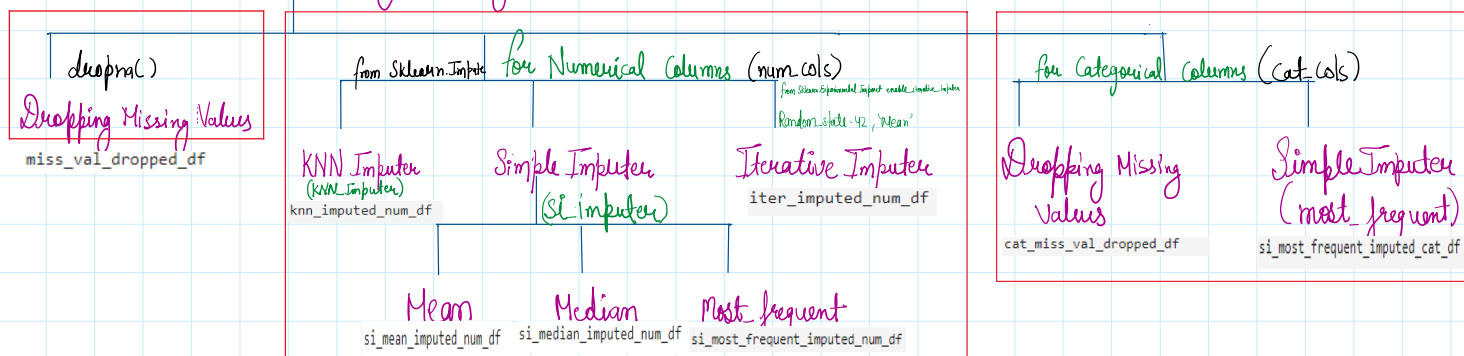 dropna()
Dropping Missing Values
miss_val_dropped_df
from Sklearn.Impute
for Numerical Columns (num_cols)
from Sklearn.Experimental Import enable_iterative_imputer
Random_state-42, 'Mean'
KNN Imputer
(KNN_Imputer)
knn_imputed_num_df
Simple Imputer
(Si_imputer)
Iterative Imputer
iter_imputed_num_df
Mean
si_mean_imputed_num_df
Median
si_median_imputed_num_df
Most_frequent
si_most_frequent_imputed_num_df
for Categorical Columns (cat_cols)
Dropping Missing
Values
cat_miss_val_dropped_df
Simple Imputer
(most_frequent)
si_most_frequent_imputed_cat_df